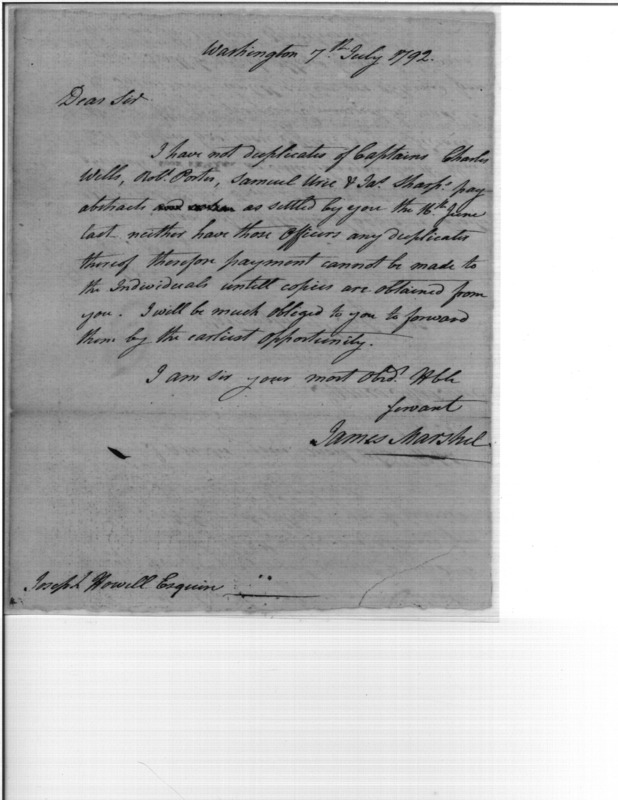 Washington 7th July 1792.
Dear Sir
I have not duplicates of Captains Charles
Wells, Robt. Porter, Samuel & Jas. Sharps pay
abstracts as settled by you the 16th June
last neither have those Officers any duplicates
thereof therefore payment cannot be made to
the Individuals untill copies are obtained from
you. I will be much obleged to you to forward
them by the earliest opportunity.
I am sir your most Obdt. Hble
servant
James Marshel
Joseph Howell Esquire